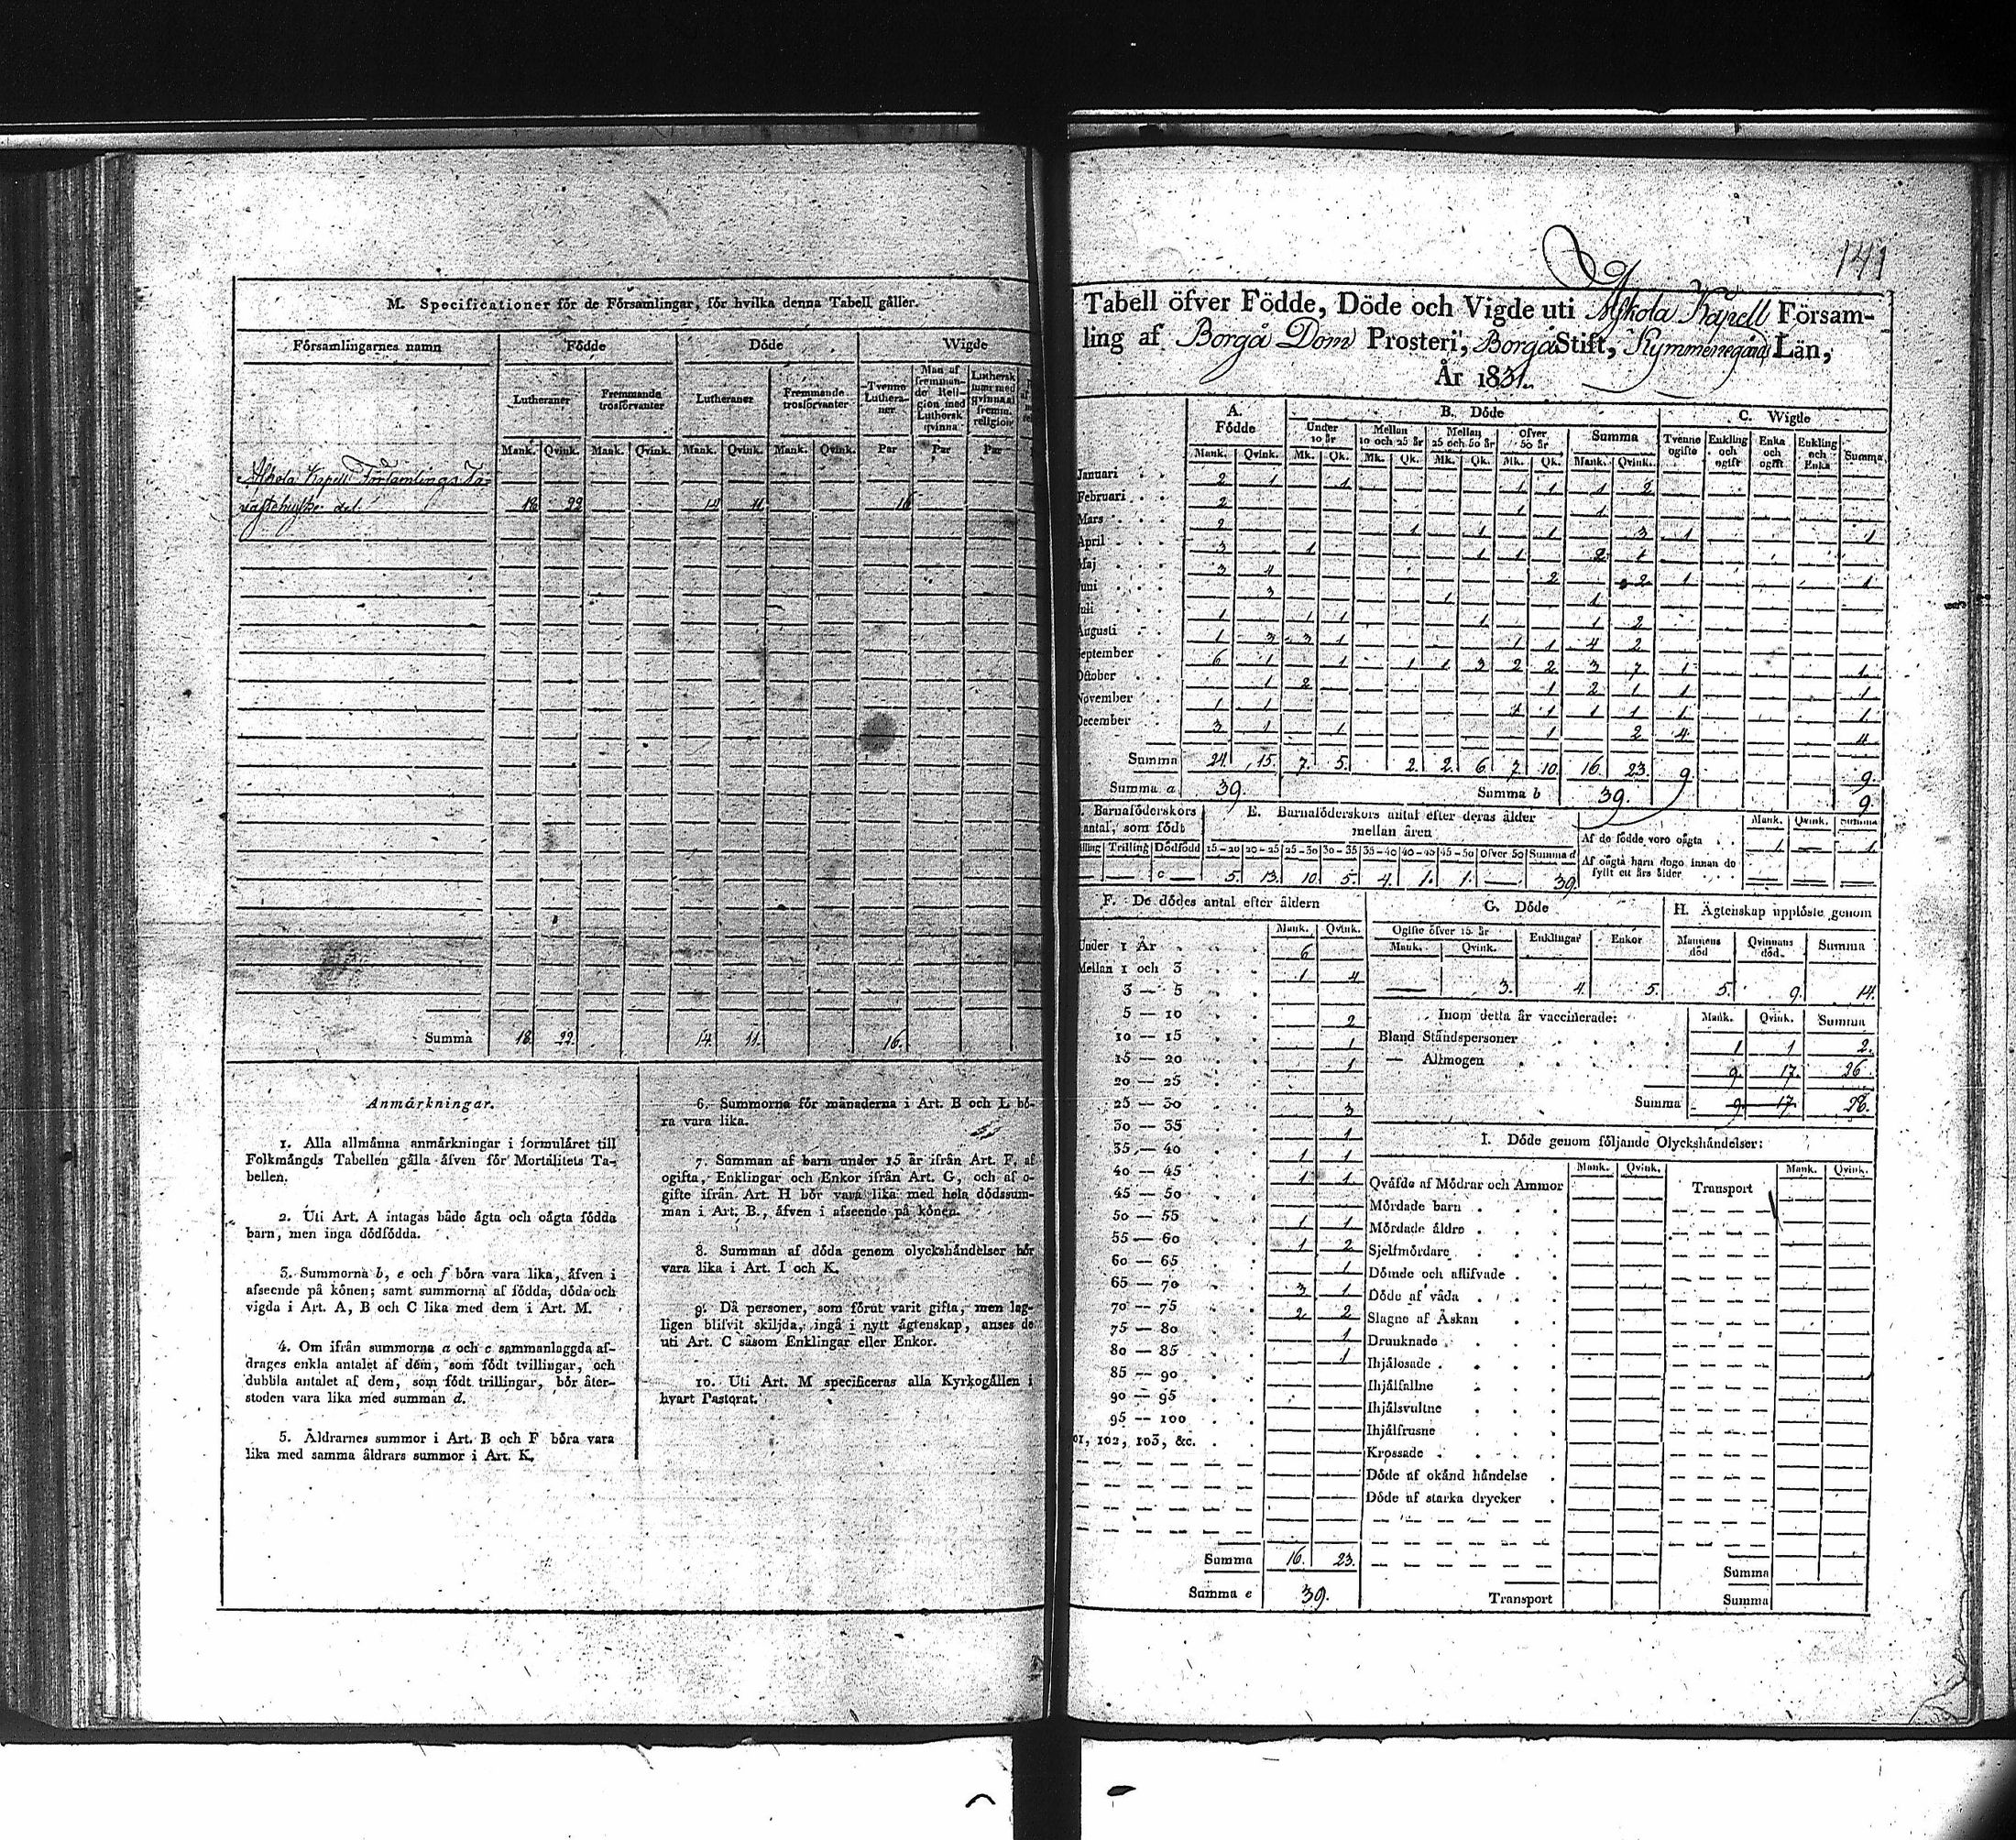 M. Specificationer för de Församlingar, för hvilka denna Tabell gäller.
Församlingarnes namn Födde Döde Wigde
Lutheraner Fremmande trosförvanter Lutheraner Fremmande trosförvanter Tvenne Lutheraner Man af fremmande Religion med Luthersk qvinna Luthersk man med qvinna af fremm. religion
Mank. Qvink. Mank. Qvink. Mank. Qvink. Mank. Qvink. Par Par Par
Askola Kapell Församlings Ta-
vastehusske del 18 22 14 11 16
Summa 18. 22. 14. 11. 16.
Anmärkningar.
1. Alla allmänna anmärkningar i formuläret till
Folkmängds Tabellen gälla äfven för Mortalitets Ta-
bellen.
2. Uti Art. A intagas både ägta och oägta födda
barn, men inga dödfödda.
3. Summorna b, e och f böra vara lika, äfven i
afseende på könen; samt summorna af födda, döda och
vigda i Art. A, B och C lika med dem i Art. M.
4. Om ifrån summorna a och c sammanlaggda af-
drages enkla antalet af dem, som födt tvillingar, och
dubbla antalet af dem, som födt trillingar, bör åter-
stoden vara lika med summan d.
5. Åldrarnes summor i Art. B och F böra vara
lika med samma åldrars summor i Art. K.
6. Summorna för månaderna i Art. B och L bö-
ra vara lika.
7. Summan af barn under 15 år ifrån Art. F, af
ogifta, Enklingar och Enkor ifrån Art. G, och af o-
gifte ifrån Art. H bör vara lika med hela dödssum-
man i Art. B., äfven i afseende på könen.
8. Summan af döda genom olyckshändelser bör
vara lika i Art. I och K.
9. Då personer, som förut varit gifta, men lag-
ligen blifvit skiljda, ingå i nytt ägtenskap, anses de
uti Art. C såsom Enklingar eller Enkor.
10. Uti Art. M specificeras alla Kyrkogällen i
hvart Pastorat.
141
Tabell öfver Födde, Döde och Vigde uti Askola Kapell Försam-
ling af Borgå Dom Prosteri, Borgå Stift, Kymmenegårds Län,
År 1831.
A. Födde B. Döde C. Wigde
Under 10 år Mellan 10 och 25 år Mellan 25 och 50 år Öfver 50 år Summa Tvenne ogifte Enkling och ogift Enka och ogift Enkling och Enka Summa
Mank. Qvink. Mk. Qk. Mk. Qk. Mk. Qk. Mk. Qk. Mank. Qvink.
Januari 2 1 1 1 1 1 2
Februari 2 1 1
Mars 2 1 1 1 3 1 1
April 3 1 1 1 2 1
Maj 3 4 2 2 1 1
Juni 3 1 1
Juli 1 1 1 1 1 2
Augusti 1 3 3 1 1 1 4 2
September 6 1 1 1 1 3 2 2 3 7 1 1
Oktober 1 2 1 2 1 1 1
November 1 1 1 1 1 1 1 1
December 3 1 1 1 2 4 4
Summa 24 15. 7. 5. 2. 2. 6. 7. 10. 16. 23. 9. 9.
Summa a 39. Summa b 39. 9.
Barnaföderskors antal, som födt
Trilling Dödfödd
c
E. Barnaföderskors antal efter deras ålder mellan åren
15-20 20-25 25-30 30-35 35-40 40-45 45-50 Öfver 50 Summa d
5. 13. 10. 5. 4. 1. 1. 39.
Mank. Qvink. Summa
Af de födde voro oägta 1 1
Af oägta barn dogo innan de fyllt ett års ålder
F. De dödes antal efter åldern
Mank. Qvink.
Under 1 År 6
Mellan 1 och 3 1 4
3 — 5
5 — 10 2
10 — 15 1
15 — 20 1
20 — 25
25 — 30 3
30 — 35 1
35 — 40 1 1
40 — 45 1 1
45 — 50
50 — 55 1 1
55 — 60 1 2
60 — 65 1
65 — 70 3 1
70 — 75 2 2
75 — 80 1
80 — 85 1
85 — 90
90 — 95
95 — 100
101, 102, 103, &c.
Summa 16. 23.
Summa e 39.
G. Döde
Ogifte öfver 15 år Enklingar Enkor
Mank. Qvink.
3. 4. 5.
H. Ägtenskap upplöste genom
Mannens död Qvinnans död Summa
5. 9. 14.
Inom detta år vaccinerade: Mank. Qvink. Summa
Bland Ståndspersoner 1 1 2.
— Allmogen 9. 17. 26.
Summa 9. 17. 28.
I. Döde genom följande Olyckshändelser:
Mank. Qvink. Mank. Qvink.
Qväfde af Mödrar och Ammor Transport
Mördade barn
Mördade äldre
Sjelfmördare
Dömde och aflifvade
Döde af våda
Slagne af Åskan
Drunknade
Ihjälosade
Ihjälfallne
Ihjälsvultne
Ihjälfrusne
Krossade
Döde af okänd händelse
Döde af starka drycker
Summa
Transport Summa